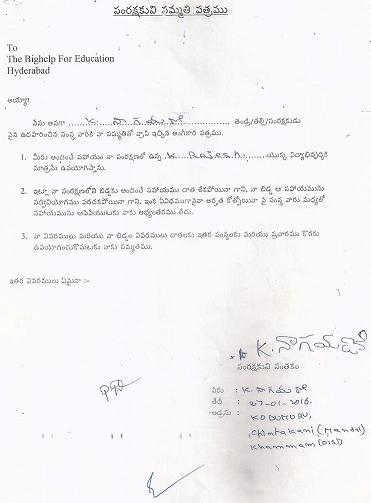 సంరక్షకుని సమ్మతి పత్రము
To
The Bighelp For Education
Hyderabad
అయ్యా!
నేను అనగా ....K. నాగమణి.... తండ్రి/తల్లి/సంరక్షకుడు
పైన ఉదహరించిన సంస్థ వారికి నా సమ్మతితో వ్రాసి ఇచ్చిన అంగీకార పత్రము.
1. మీరు అందించే సహాయం నా సంరక్షణలో ఉన్న .K. RAJESH........యొక్క విద్యాభివృద్ధికి
మాత్రమే ఉపయోగిస్తాను.
2. ఇట్లా నా సంరక్షణలోని బిడ్డకు అందించే సహాయము దాత లేకపోయినా గాని, నా బిడ్డ ఆ సహాయమును
సద్వినియోగము పరచకపోయినా గాని, ఇంక ఏవిధముగానైనా అర్హత కోల్పోయినా పై సంస్థ వారు మధ్యలో
సహాయమును ఆపివేయుటకు నాకు అభ్యంతరము లేదు.
3. నా వివరములు మరియు నా బిడ్డల వివరములు దాతలకు ఇతర సంస్థలకు మరియు ప్రచారము కొరకు
ఉపయోగించుకొనుటకు నాకు సమ్మతము.
ఇతర వివరములు ఏమైనా :-
K. నాగమణి
సంరక్షకుని సంతకం
పేరు : K నాగమణి
తేదీ : 27-01-2016.
అడ్రసు : KODUMURU,
Chintakani (Mandal)
Khammam (Dist)